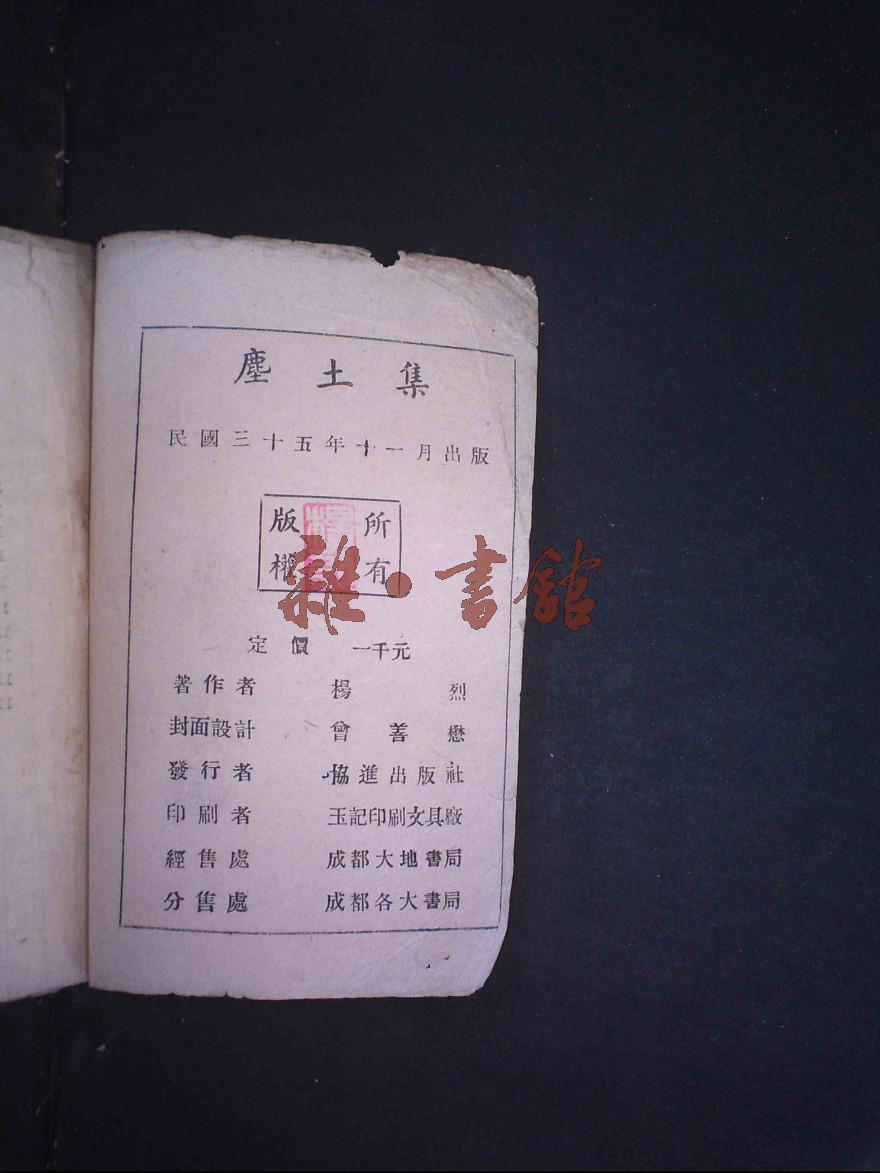 塵土集
民國三十五年十一月出版
版 所
權 有
雜·書館
定價 一千元
著作者 楊烈
封面設計 曾善懋
發行者 協進出版社
印刷者 玉記印刷文具廠
經售處 成都大地書局
分售處 成都各大書局